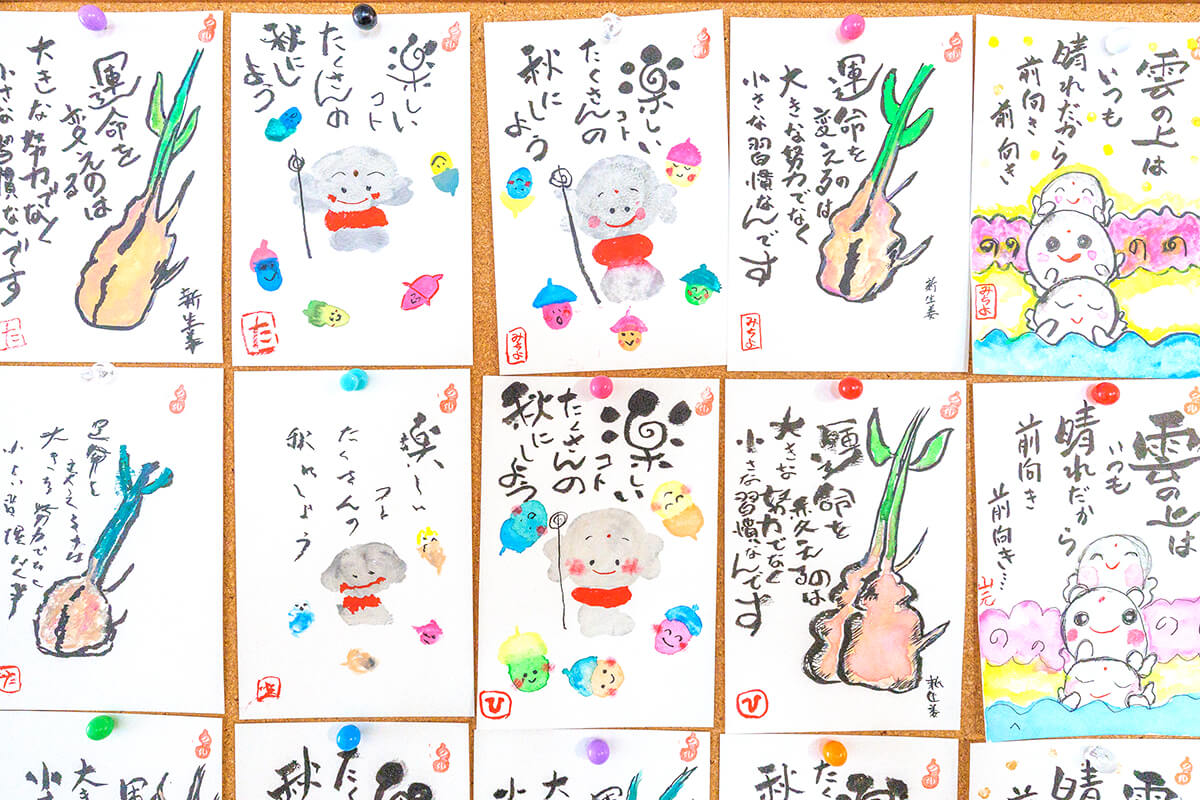 運命を
変えるのは
大きな努力でなく
小さな習慣なんです
新生姜
た
楽しい
コト
たくさんの
秋にし
よう
た
楽しい
コト
たくさんの
秋に
しよう
みちよ
運命を
変えるのは
大きな努力でなく
小さな習慣なんです
新生姜
みちよ
雲の上は
いつも
晴れだから
前向き
前向き
みちよ
運命を
大きな努力でなく
た
楽しい
コト
たくさんの
秋にしよう
楽しい
コト
たくさんの
秋にしよう
ひ
運命を
変えるのは
大きな努力でなく
小さな習慣なんです
新生姜
ひ
雲の上は
いつも
晴れだから
前向き
前向き…
山元
大き
小さ
たく
秋
大
小
たく
秋に
雲
晴